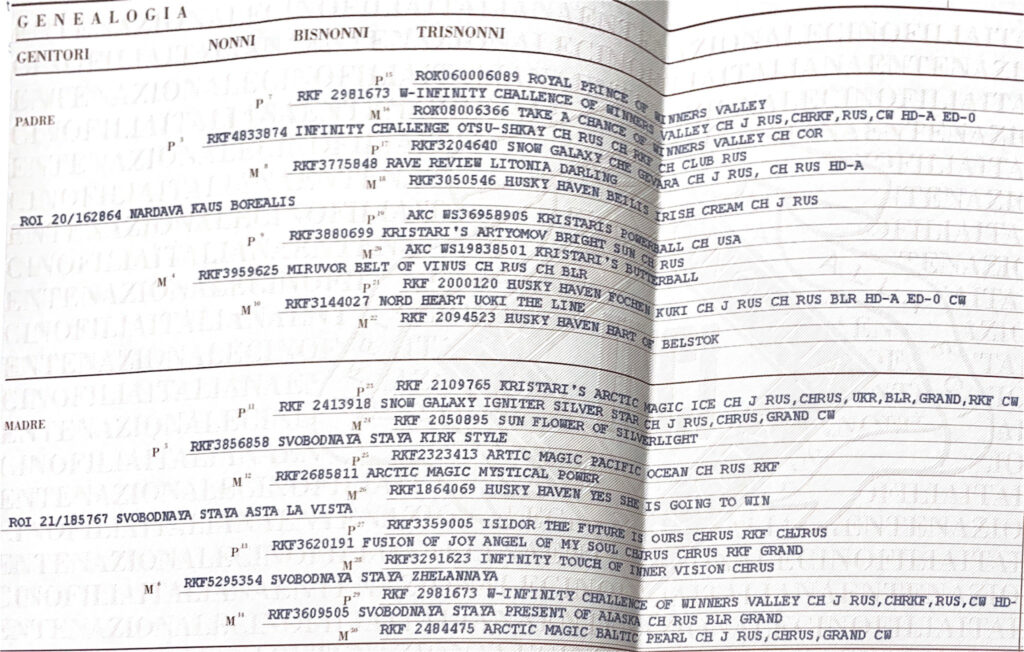 GENEALOGIA
GENITORI NONNI BISNONNI TRISNONNI
P 15 ROK060006089 ROYAL PRINCE OF WINNERS VALLEY
P 7 RKF 2981673 W-INFINITY CHALLENCE OF WINNERS VALLEY CH J RUS,CHRKF,RUS,CW HD-A ED-0
PADRE
M 16 ROK08006366 TAKE A CHANCE OF WINNERS VALLEY CH COR
P RKF4833874 INFINITY CHALLENGE OTSU-SHKAY CH RUS CH RKF CH CLUB RUS
P 17 RKF3204640 SNOW GALAXY CHE GEVARA CH J RUS, CH RUS HD-A
M RKF3775848 RAVE REVIEW LITONIA DARLING
M 18 RKF3050546 HUSKY HAVEN BEILIS IRISH CREAM CH J RUS
ROI 20/162864 NARDAVA KAUS BOREALIS
P 19 AKC WS36958905 KRISTARIS POWERBALL CH USA
P 9 RKF3880699 KRISTARI'S ARTYOMOV BRIGHT SUN CH RUS
M 20 AKC WS19838501 KRISTARI'S BUTTERBALL
M 4 RKF3959625 MIRUVOR BELT OF VINUS CH RUS CH BLR
P 21 RKF 2000120 HUSKY HAVEN FOCHEN KUKI CH J RUS CH RUS BLR HD-A ED-0 CW
M 10 RKF3144027 NORD HEART UOKI THE LINE
M 22 RKF 2094523 HUSKY HAVEN HART OF BELSTOK
P 23 RKF 2109765 KRISTARI'S ARCTIC MAGIC ICE CH J RUS,CHRUS,UKR,BLR,GRAND,RKF CW
P 11 RKF 2413918 SNOW GALAXY IGNITER SILVER STAR CH J RUS,CHRUS,GRAND CW
MADRE
M 24 RKF 2050895 SUN FLOWER OF SILVERLIGHT
P 5 RKF3856858 SVOBODNAYA STAYA KIRK STYLE
P 25 RKF2323413 ARTIC MAGIC PACIFIC OCEAN CH RUS RKF
M 12 RKF2685811 ARCTIC MAGIC MYSTICAL POWER
M 26 RKF1864069 HUSKY HAVEN YES SHE IS GOING TO WIN
ROI 21/185767 SVOBODNAYA STAYA ASTA LA VISTA
P 27 RKF3359005 ISIDOR THE FUTURE IS OURS CHRUS RKF CHJRUS
P 13 RKF3620191 FUSION OF JOY ANGEL OF MY SOUL CHJRUS CHRUS RKF GRAND
M 28 RKF3291623 INFINITY TOUCH OF INNER VISION CHRUS
M 6 RKF5295354 SVOBODNAYA STAYA ZHELANNAYA
P 29 RKF 2981673 W-INFINITY CHALLENCE OF WINNERS VALLEY CH J RUS,CHRKF,RUS,CW HD-
M 14 RKF3609505 SVOBODNAYA STAYA PRESENT OF ALASKA CH RUS BLR GRAND
M 30 RKF 2484475 ARCTIC MAGIC BALTIC PEARL CH J RUS,CHRUS,GRAND CW